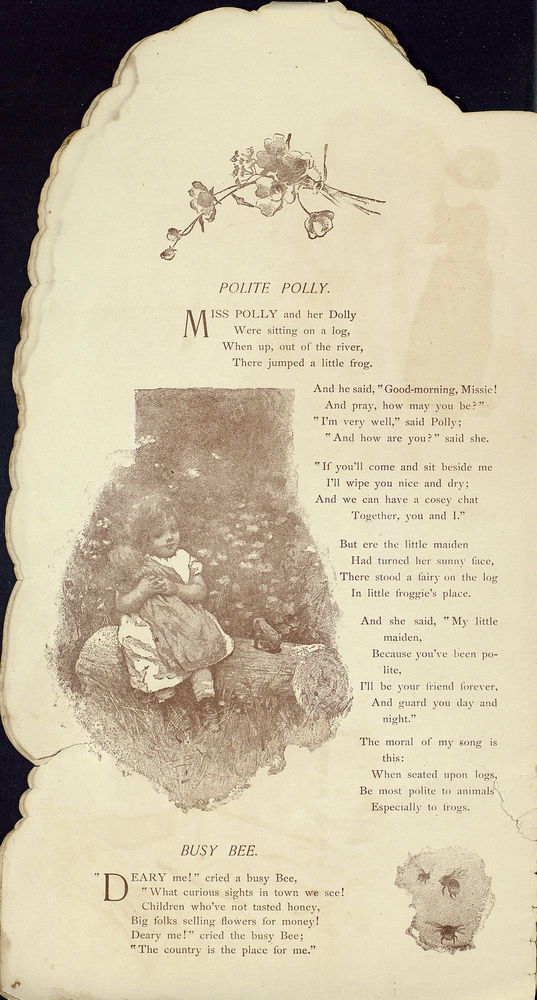 POLITE POLLY.
MISS POLLY and her Dolly
Were sitting on a log,
When up, out of the river,
There jumped a little frog.
And he said, "Good-morning, Missie!
And pray, how may you be?"
"I'm very well," said Polly;
"And how are you?" said she.
"If you'll come and sit beside me
I'll wipe you nice and dry;
And we can have a cosey chat
Together, you and I."
But ere the little maiden
Had turned her sunny face,
There stood a fairy on the log
In little froggie's place.
And she said, "My little
maiden,
Because you've been po-
lite,
I'll be your friend forever,
And guard you day and
night."
The moral of my song is
this:
When seated upon logs,
Be most polite to animals
Especially to frogs.
BUSY BEE.
"DEARY me!" cried a busy Bee,
"What curious sights in town we see!
Children who've not tasted honey,
Big folks selling flowers for money!
Deary me!" cried the busy Bee;
"The country is the place for me."